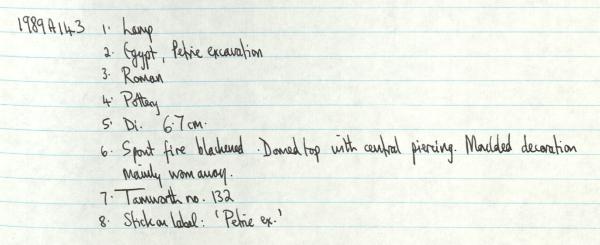 1989A143 1. Lamp
2. Egypt, Petrie excavation
3. Roman
4. Pottery
5. Di. 6.7 cm.
6. Spout fire blackened. Domed top with central piercing. Moulded decoration
mainly worn away.
7. Tamworth no. 132
8. Stick on label: 'Petrie ex.'